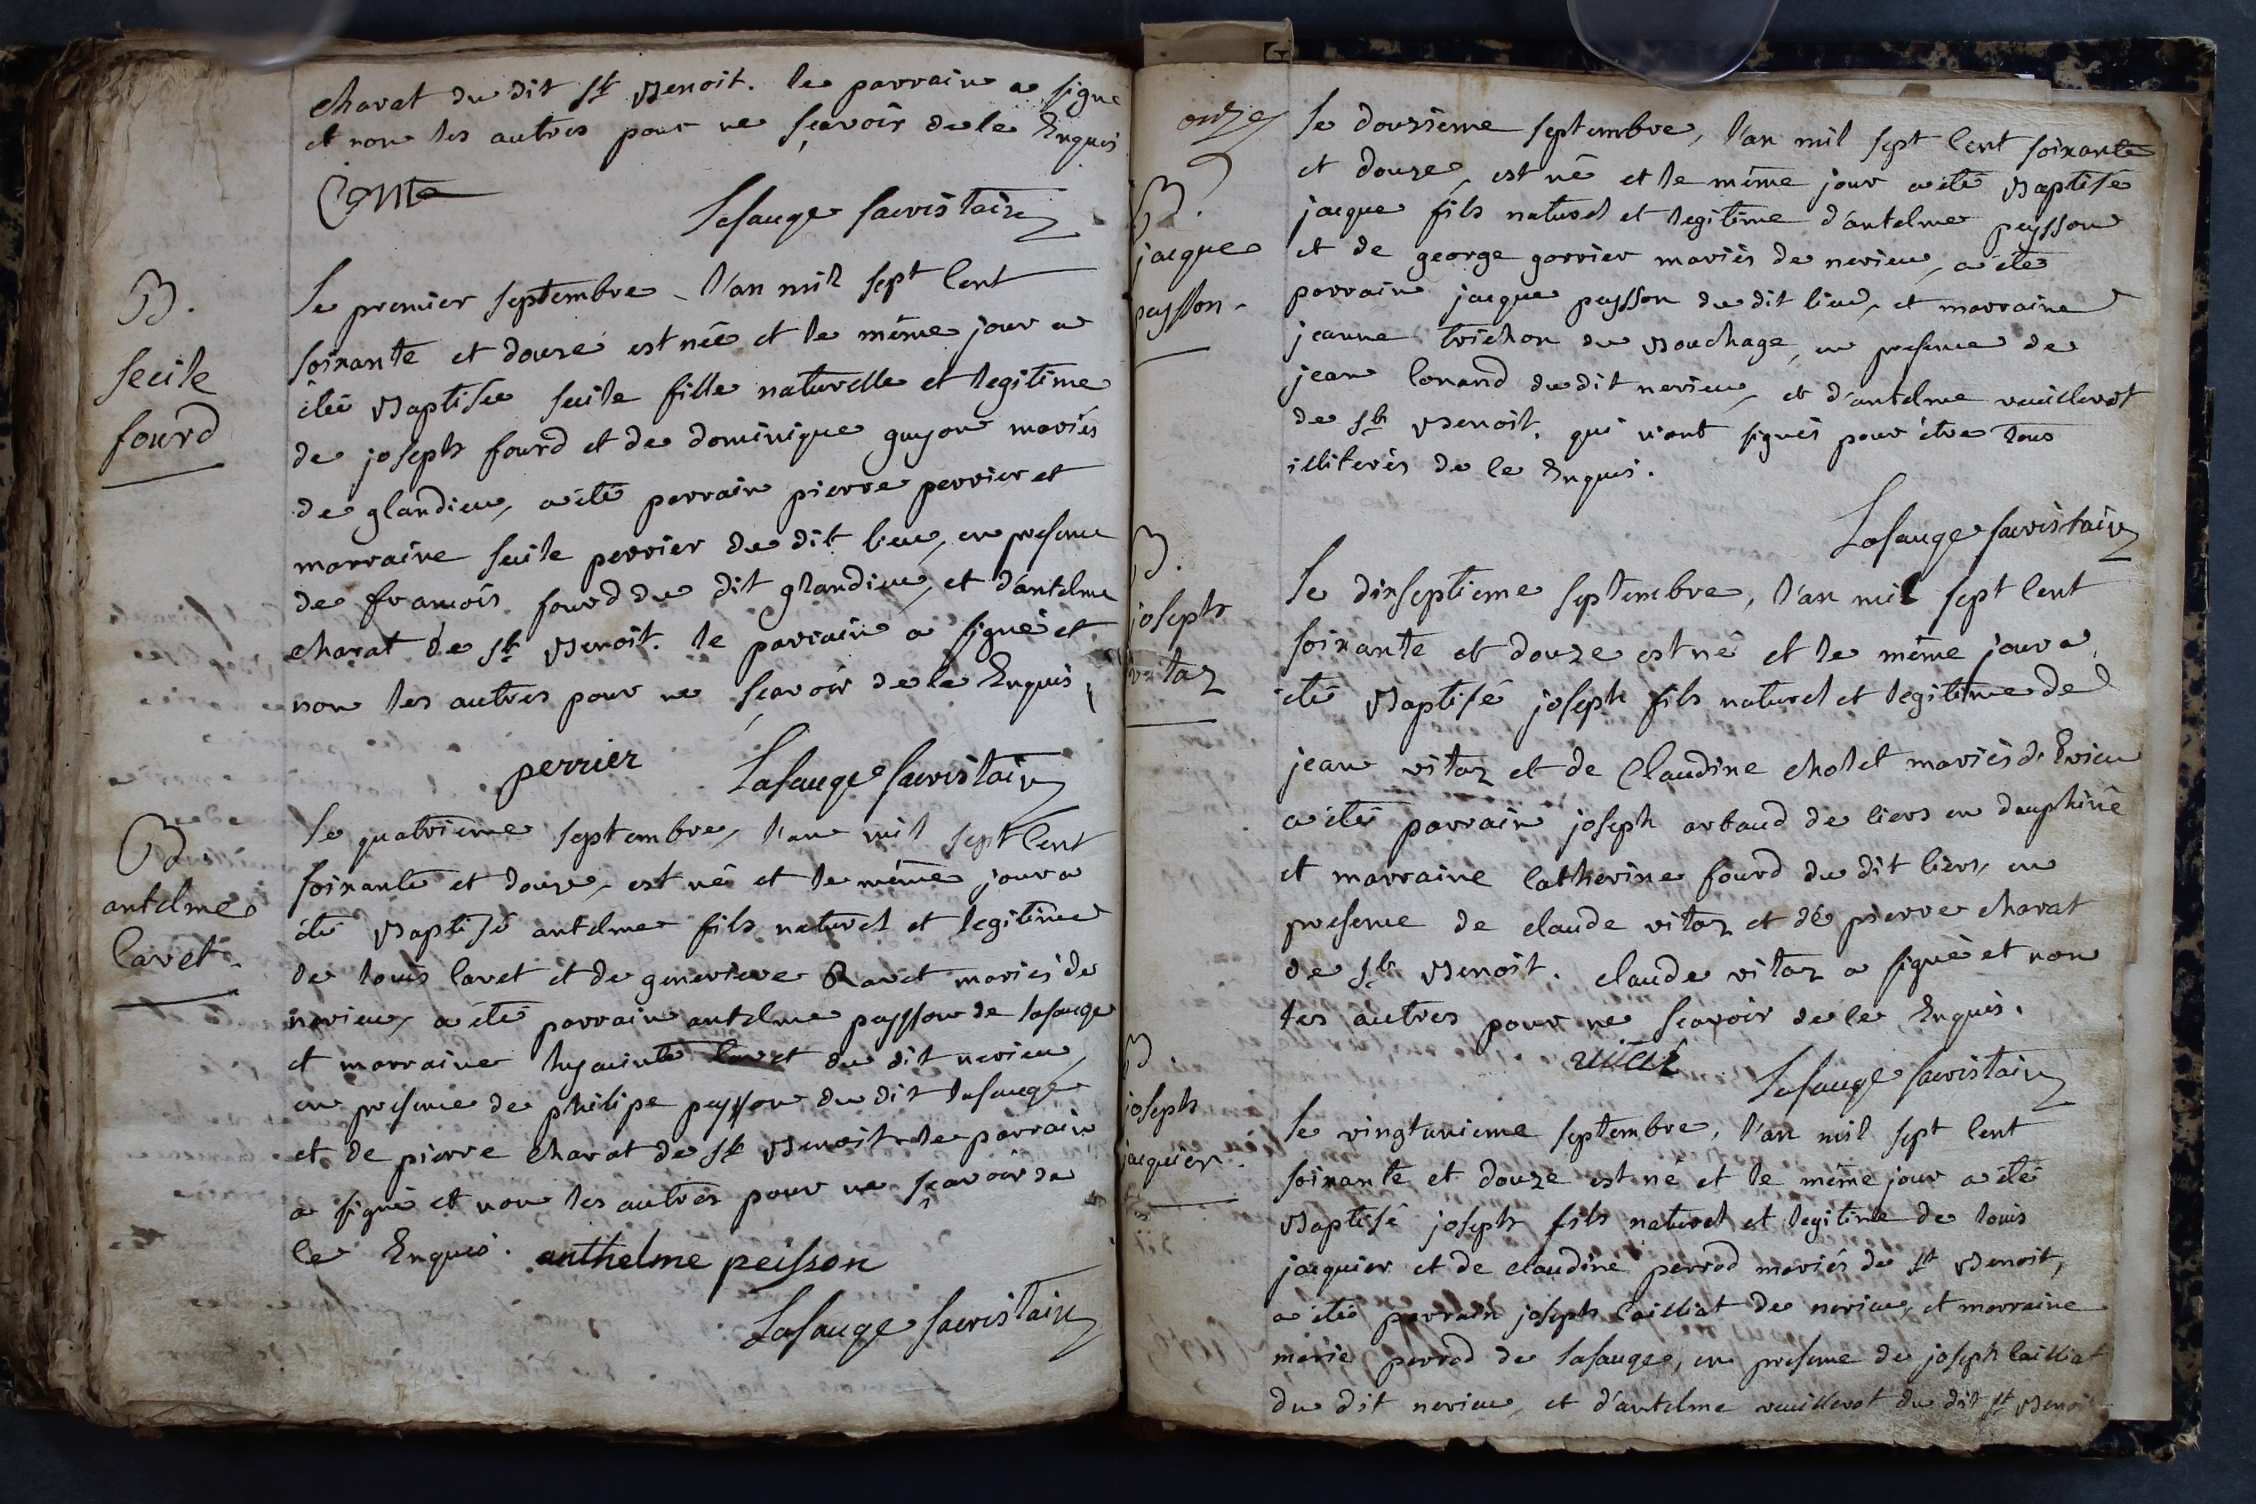 charat du dit st Benoit. le parrain a signé
et non les autres pour ne scavoir de ce Enquis
Conte
Lasauge sacristain
B.
secile
fourd
Le premier septembre, l'an mil sept Cent
soixante et douze est née et le même jour a
été Baptisée secile fille naturelle et legitime
de joseph fourd et de dominique guyon mariés
de glandieu, a été parrain pierre perrier et
marraine secile perrier du dit lieu, en presence
de francois fourd du dit glandieu, et d'antelme
charat de st Benoit. le parrain a signé et
non les autres pour ne scavoir de ce Enquis,
perrier
Lasauge sacristain
B
antelme
Cavet.
Le quatrieme septembre, l'an mil sept Cent
soixante et douze, est né et le même jour a
été Baptisé antelme fils naturel et legitime
de louis Cavet et de genevieve Ravet mariés de
nerieu, a été parrain antelme paysson de lasauge
et marraine hyacinte Cavet du dit nerieu,
en presence de philipe paysson du dit lasauge
et de pierre Charat de st Benoit le parrain
a signé et non les autres pour ne scavoir de
ce Enquis. anthelme peisson
Lasauge sacristain
onze
B.
jacque
paysson.
Le douzieme septembre, l'an mil sept Cent soixante
et douze, est né et le même jour a été Baptisé
jacque fils naturel et legitime d'antelme paysson
et de george gorrier mariés de nerieu, a été
parrain jacque paysson du dit lieu, et marraine
jeanne trichon du Bouchage, en presence de
jean Conand du dit nerieu, et d'antelme vuillerot
de st Benoit. qui n'ont signés pour être tous
illiterés de ce Enquis.
Lasauge sacristain
B.
joseph
vitoz
Le dixseptieme septembre, l'an mil sept Cent
soixante et douze est né et le même jour a
été Baptisé joseph fils naturel et legitime de
jean vitoz et de Claudine cholet mariés d'Evieu
a été parrain joseph arbaud de ciers en dauphiné
et marraine Catherine fourd du dit Ciers, en
presence de claude vitoz et de pierre charat
de st Benoit. claude vitoz a signé et non
les autres pour ne scavoir de ce Enquis.
Lasauge sacristain
B.
joseph
jacquier.
Le vingtunieme septembre, l'an mil sept Cent
soixante et douze est né et le même jour a été
Baptisé joseph fils naturel et legitime de louis
jacquier et de claudine perrod mariés de st Benoit,
a été parrain joseph Cailliat de nerieu, et marraine
marie perrod de lasauge, en presence de joseph Cailliat
du dit nerieu, et d'antelme vuillerot du dit st Benoit